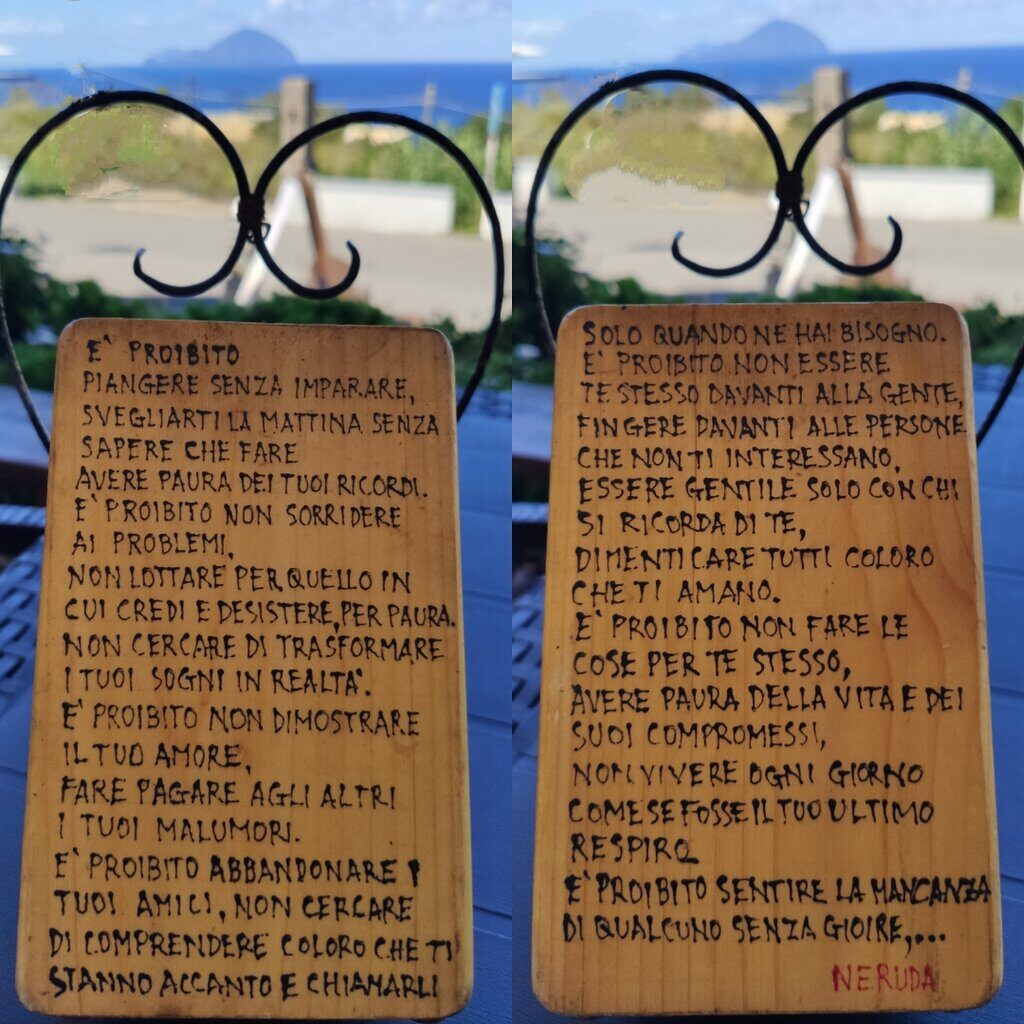 E' PROIBITO
PIANGERE SENZA IMPARARE,
SVEGLIARTI LA MATTINA SENZA
SAPERE CHE FARE
AVERE PAURA DEI TUOI RICORDI.
E' PROIBITO NON SORRIDERE
AI PROBLEMI,
NON LOTTARE PER QUELLO IN
CUI CREDI E DESISTERE, PER PAURA.
NON CERCARE DI TRASFORMARE
I TUOI SOGNI IN REALTA'.
E' PROIBITO NON DIMOSTRARE
IL TUO AMORE,
FARE PAGARE AGLI ALTRI
I TUOI MALUMORI.
E' PROIBITO ABBANDONARE I
TUOI AMICI, NON CERCARE
DI COMPRENDERE COLORO CHE TI
STANNO ACCANTO E CHIAMARLI
SOLO QUANDO NE HAI BISOGNO.
E' PROIBITO NON ESSERE
TE STESSO DAVANTI ALLA GENTE,
FINGERE DAVANTI ALLE PERSONE
CHE NON TI INTERESSANO,
ESSERE GENTILE SOLO CON CHI
SI RICORDA DI TE,
DIMENTICARE TUTTI COLORO
CHE TI AMANO.
E' PROIBITO NON FARE LE
COSE PER TE STESSO,
AVERE PAURA DELLA VITA E DEI
SUOI COMPROMESSI,
NON VIVERE OGNI GIORNO
COME SE FOSSE IL TUO ULTIMO
RESPIRO
E' PROIBITO SENTIRE LA MANCANZA
DI QUALCUNO SENZA GIOIRE,...
NERUDA